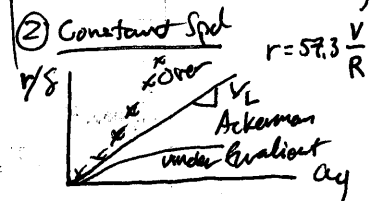 ② Constant Spd
r = 57.3 V/R
r/δ
Over
V_L
Ackerman
under Gradient
ay